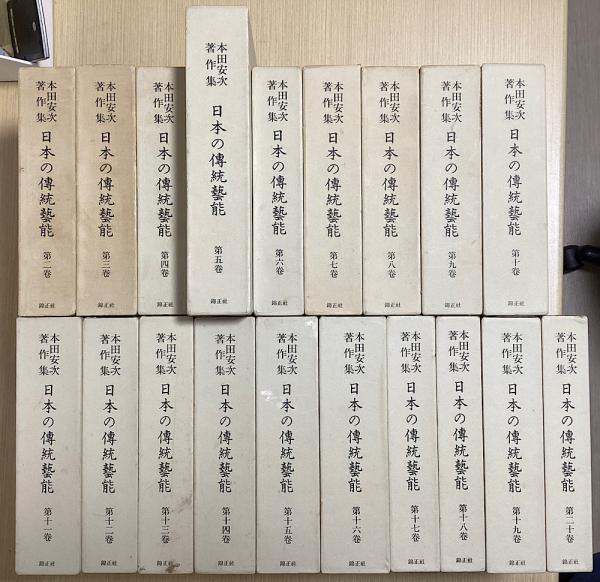 本田安次
著作集
日本の傳統藝能
第二巻
錦正社
本田安次
著作集
日本の傳統藝能
第三巻
錦正社
本田安次
著作集
日本の傳統藝能
第四巻
錦正社
本田安次
著作集
日本の傳統藝能
第五巻
錦正社
本田安次
著作集
日本の傳統藝能
第六巻
錦正社
本田安次
著作集
日本の傳統藝能
第七巻
錦正社
本田安次
著作集
日本の傳統藝能
第八巻
錦正社
本田安次
著作集
日本の傳統藝能
第九巻
錦正社
本田安次
著作集
日本の傳統藝能
第十巻
錦正社
本田安次
著作集
日本の傳統藝能
第十一巻
錦正社
本田安次
著作集
日本の傳統藝能
第十二巻
錦正社
本田安次
著作集
日本の傳統藝能
第十三巻
錦正社
本田安次
著作集
日本の傳統藝能
第十四巻
錦正社
本田安次
著作集
日本の傳統藝能
第十五巻
錦正社
本田安次
著作集
日本の傳統藝能
第十六巻
錦正社
本田安次
著作集
日本の傳統藝能
第十七巻
錦正社
本田安次
著作集
日本の傳統藝能
第十八巻
錦正社
本田安次
著作集
日本の傳統藝能
第十九巻
錦正社
本田安次
著作集
日本の傳統藝能
第二十巻
錦正社